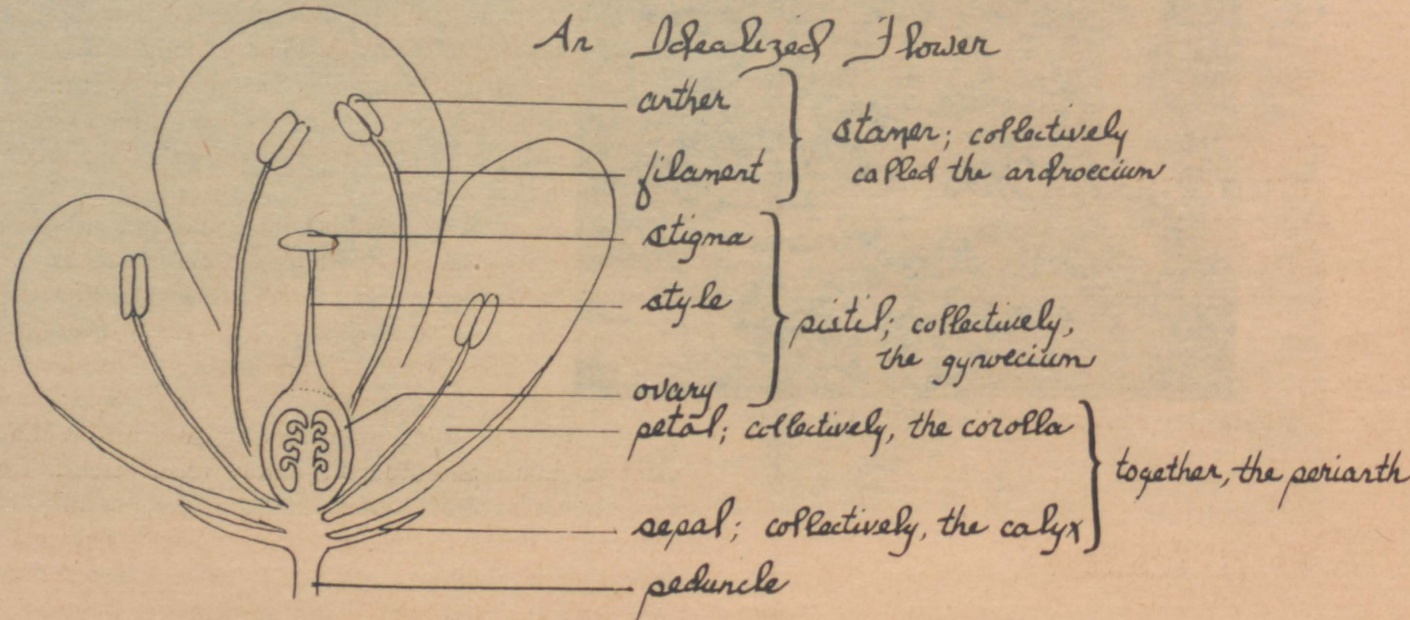 An Idealized Flower
anther
filament
stamen; collectively
called the androecium
stigma
style
ovary
pistil; collectively,
the gynoecium
petal; collectively, the corolla
sepal; collectively, the calyx
together, the perianth
peduncle